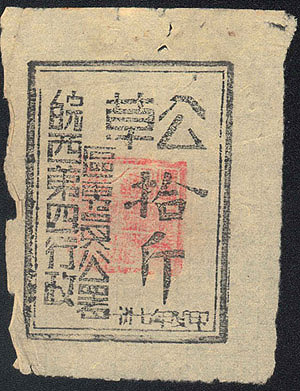 公草
拾斤
皖西第四行政
區專員公署
卅七年印